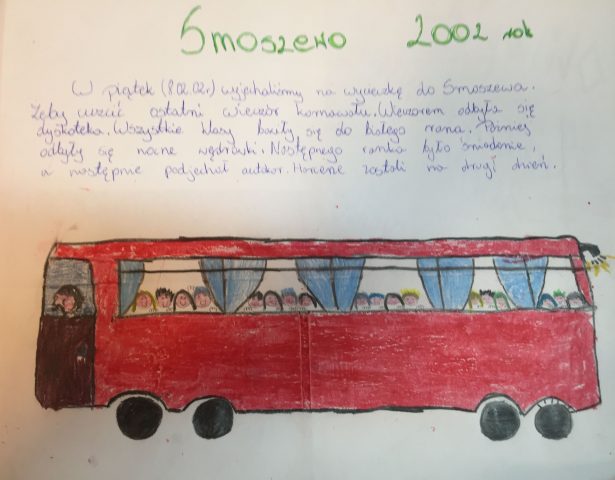 Smoszewo 2002 rok
W piątek (8.02.02r) wyjechaliśmy na wycieczkę do Smoszewa.
Żeby uczcić ostatni wieczór karnawału. Wieczorem odbyła się
dyskoteka. Wszystkie klasy bawiły się do białego rana. Później
odbyły się nocne wędrówki. Następnego ranka było śniadanie,
a następnie podjechał autokar. Harcerze zostali na drugi dzień.